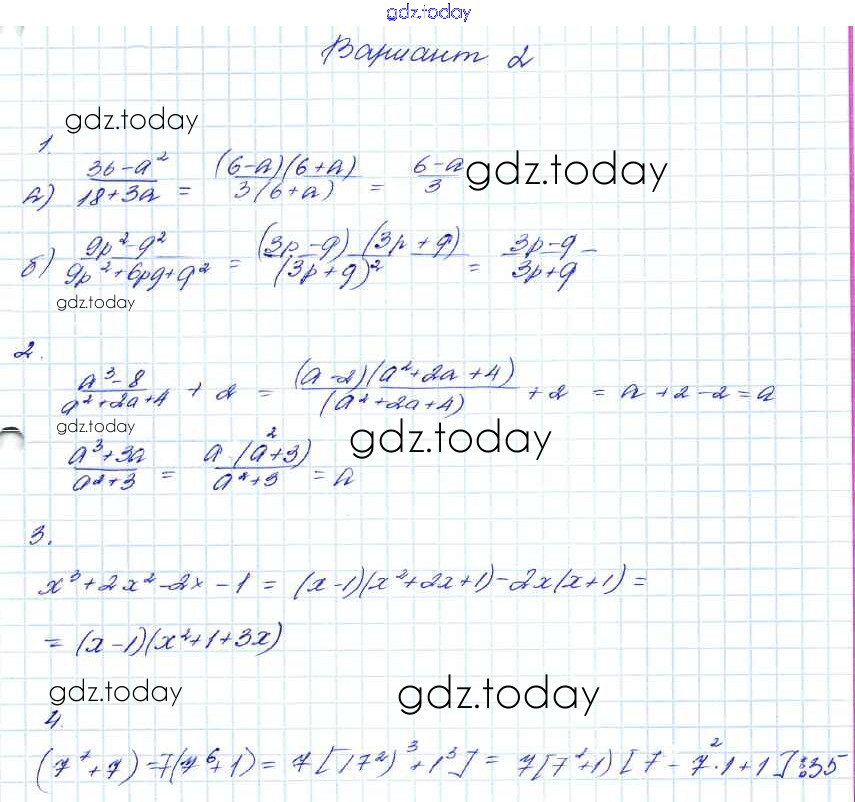 gdz.today
Вариант 2
gdz.today
1.
а) (36-a²)/(18+3a) = ((6-a)(6+a))/(3(6+a)) = (6-a)/3 gdz.today
б) (9p²-q²)/(9p²+6pq+q²) = ((3p-q)(3p+q))/((3p+q)²) = (3p-q)/(3p+q) -
gdz.today
2.
(a³-8)/(a²+2a+4) + 2 = ((a-2)(a²+2a+4))/((a²+2a+4)) + 2 = a+2-2=a
gdz.today
gdz.today
(a³+3a)/(a²+3) = (a(a²+3))/(a²+3) = a
3.
x³+2x²-2x-1 = (x-1)(x²+2x+1)-2x(x+1)=
= (x-1)(x²+1+3x)
gdz.today
gdz.today
4.
(7⁷+7)=7(7⁶+1)= 7[(7²)³+1³]= 7[7²+1)[7-7²·1+1]⋮35